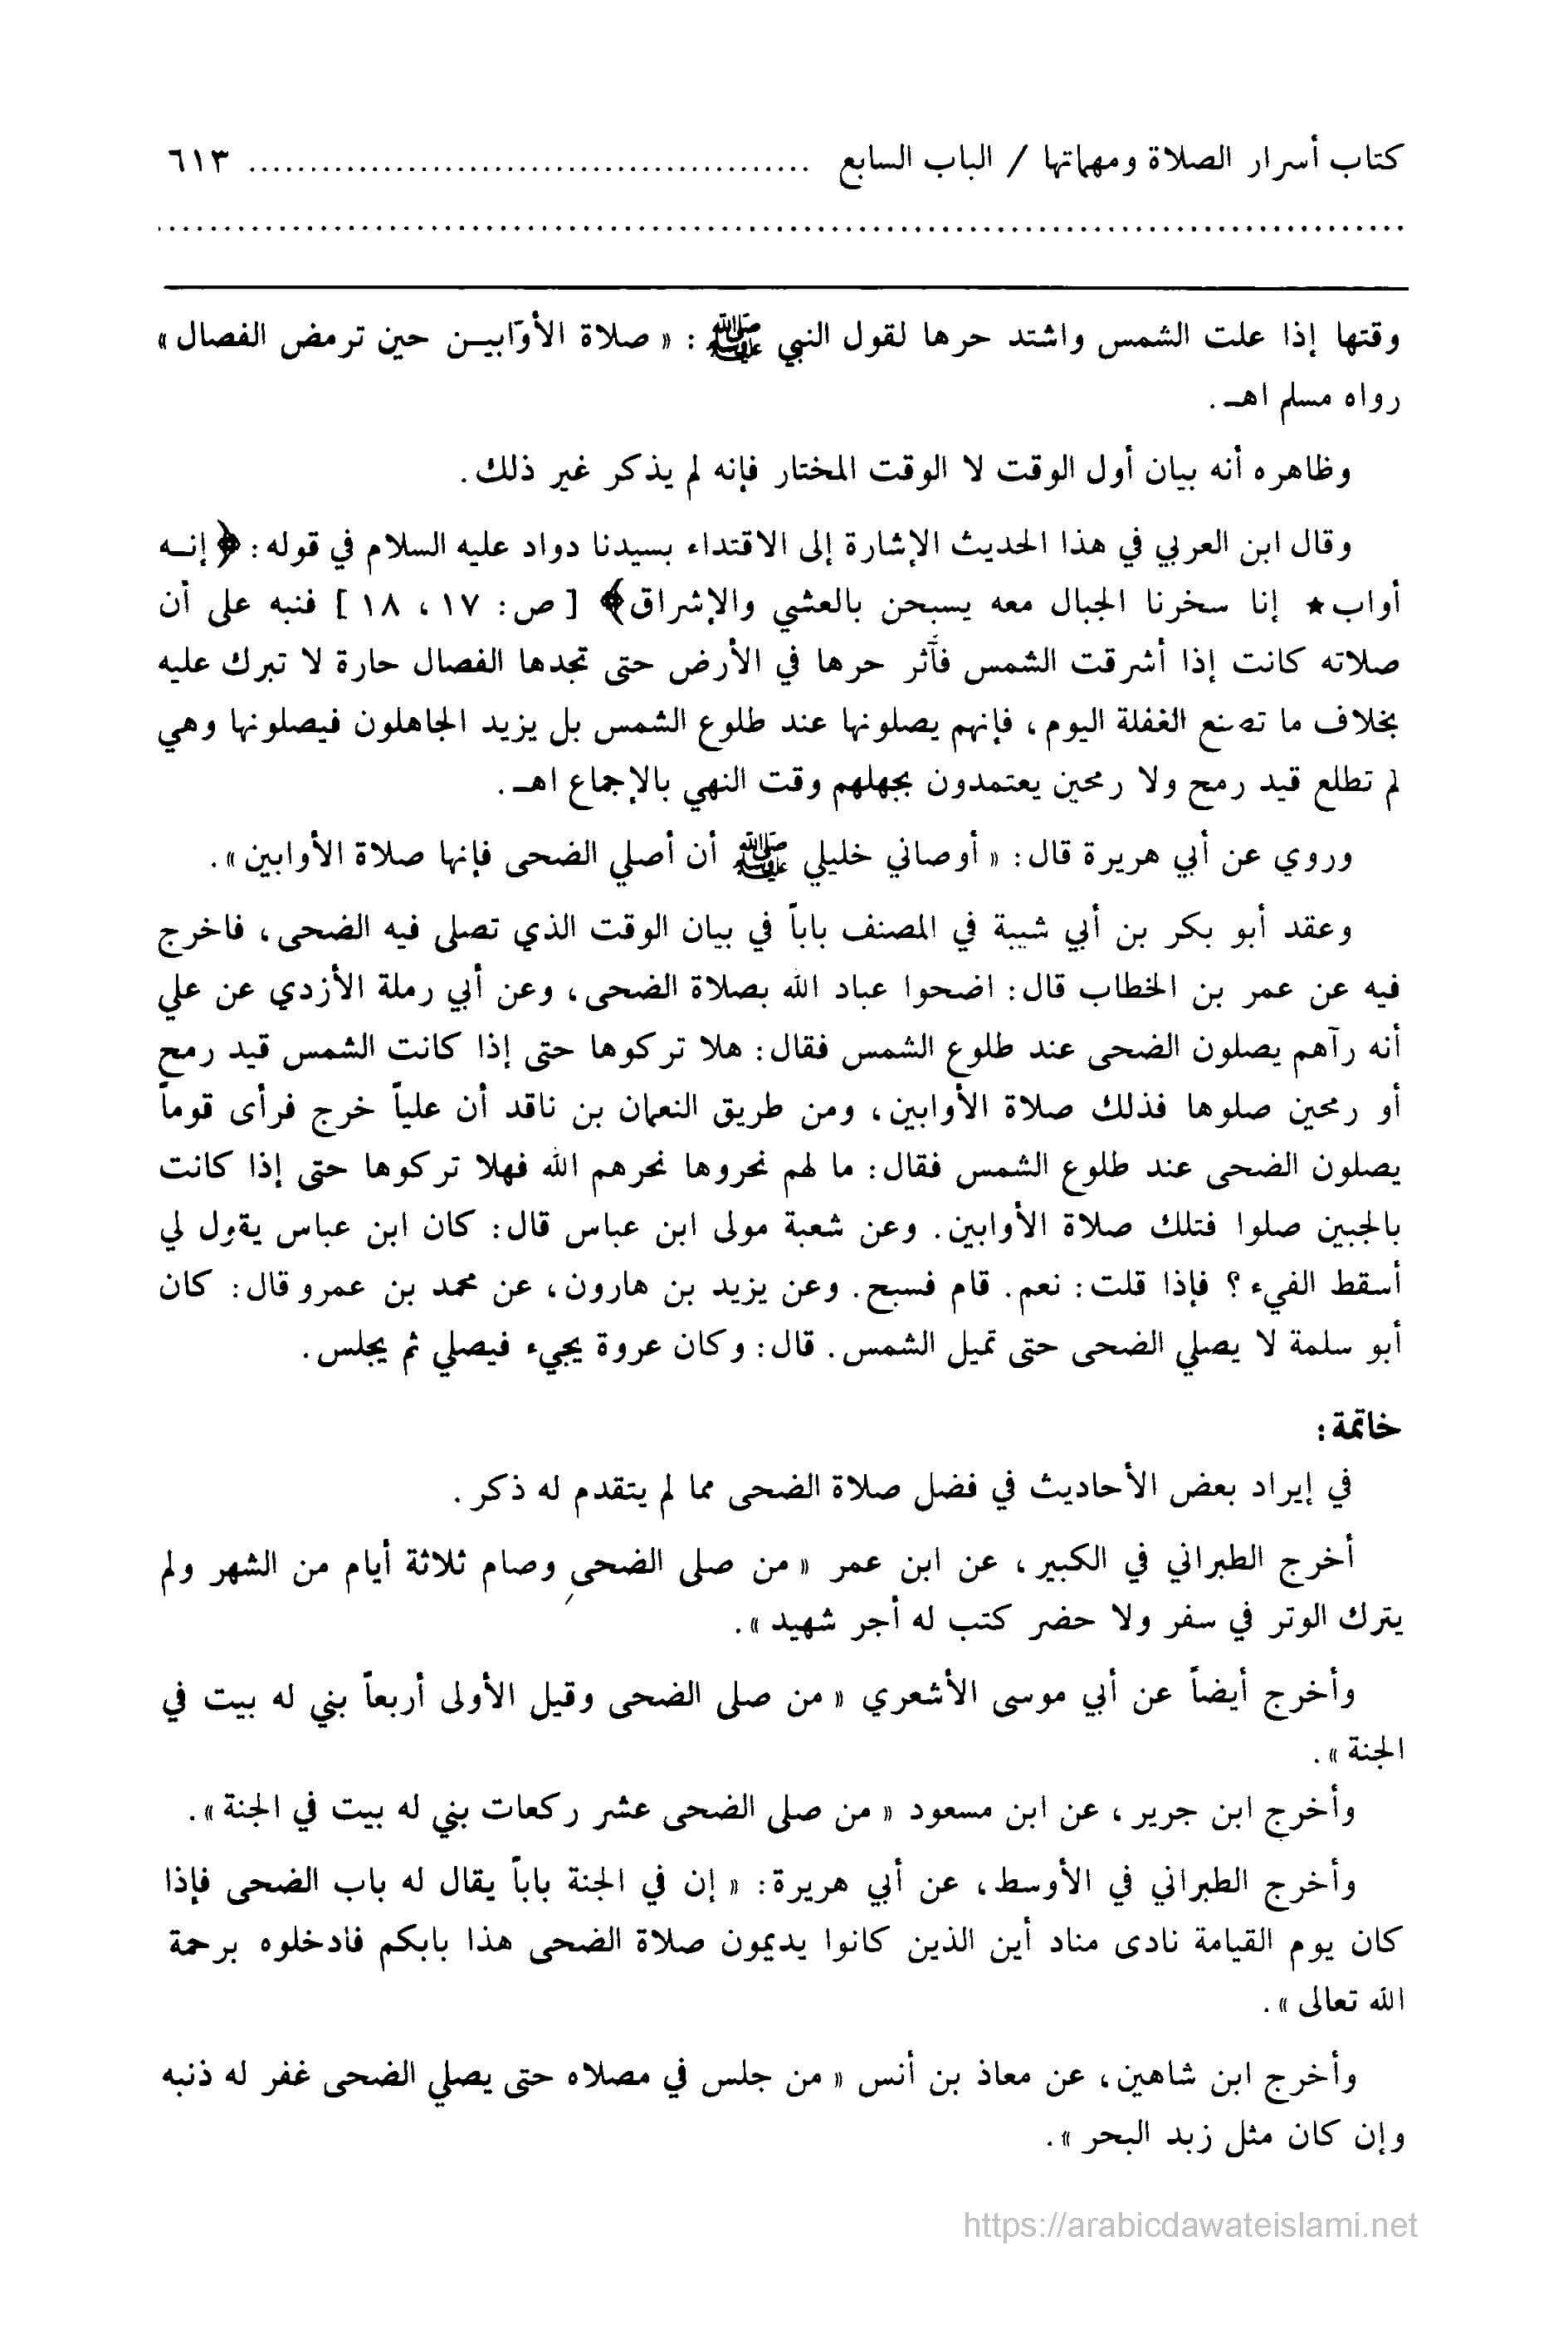 كتاب أسرار الصلاة ومهماتها / الباب السابع ............................................... ٦١٣
...........................................................................................
وقتها إذا علت الشمس واشتد حرها لقول النبي ﷺ : « صلاة الأوّابيـن حين ترمض الفصال »
رواه مسلم اهـ .
وظاهره أنه بيان أول الوقت لا الوقت المختار فإنه لم يذكر غير ذلك .
وقال ابن العربي في هذا الحديث الإشارة إلى الاقتداء بسيدنا دواد عليه السلام في قوله : ﴿ إنـه
أواب★ إنا سخرنا الجبال معه يسبحن بالعشي والإشراق﴾ [ ص : ١٧ ، ١٨ ] فنبه على أن
صلاته كانت إذا أشرقت الشمس فآثر حرها في الأرض حتى تجدها الفصال حارة لا تبرك عليه
بخلاف ما تصنع الغفلة اليوم ، فإنهم يصلونها عند طلوع الشمس بل يزيد الجاهلون فيصلونها وهي
لم تطلع قيد رمح ولا رمحين يعتمدون بجهلهم وقت النهي بالإجماع اهـ .
وروي عن أبي هريرة قال : « أوصاني خليلي ﷺ أن أصلي الضحى فإنها صلاة الأوابين » .
وعقد أبو بكر بن أبي شيبة في المصنف باباً في بيان الوقت الذي تصلى فيه الضحى ، فاخرج
فيه عن عمر بن الخطاب قال : اضحوا عباد الله بصلاة الضحى ، وعن أبي رملة الأزدي عن علي
أنه رآهم يصلون الضحى عند طلوع الشمس فقال : هلا تركوها حتى إذا كانت الشمس قيد رمح
أو رمحين صلوها فذلك صلاة الأوابين ، ومن طريق النعمان بن ناقد أن علياً خرج فرأى قوماً
يصلون الضحى عند طلوع الشمس فقال : ما لهم نحروها نحرهم الله فهلا تركوها حتى إذا كانت
بالجبين صلوا فتلك صلاة الأوابين . وعن شعبة مولى ابن عباس قال : كان ابن عباس يقول لي
أسقط الفيء ؟ فإذا قلت : نعم . قام فسبح . وعن يزيد بن هارون ، عن محمد بن عمرو قال : كان
أبو سلمة لا يصلي الضحى حتى تميل الشمس . قال : وكان عروة يجيء فيصلي ثم يجلس .
خاتمة :
في إيراد بعض الأحاديث في فضل صلاة الضحى مما لم يتقدم له ذكر .
أخرج الطبراني في الكبير ، عن ابن عمر « من صلى الضحى وصام ثلاثة أيام من الشهر ولم
يترك الوتر في سفر ولا حضر كتب له أجر شهيد » .
وأخرج أيضاً عن أبي موسى الأشعري « من صلى الضحى وقيل الأولى أربعاً بني له بيت في
الجنة » .
وأخرج ابن جرير ، عن ابن مسعود « من صلى الضحى عشر ركعات بني له بيت في الجنة » .
وأخرج الطبراني في الأوسط ، عن أبي هريرة : « إن في الجنة باباً يقال له باب الضحى فإذا
كان يوم القيامة نادى مناد أين الذين كانوا يديمون صلاة الضحى هذا بابكم فادخلوه برحمة
الله تعالى » .
وأخرج ابن شاهين ، عن معاذ بن أنس « من جلس في مصلاه حتى يصلي الضحى غفر له ذنبه
وإن كان مثل زبد البحر » .
https://arabicdawateislami.net